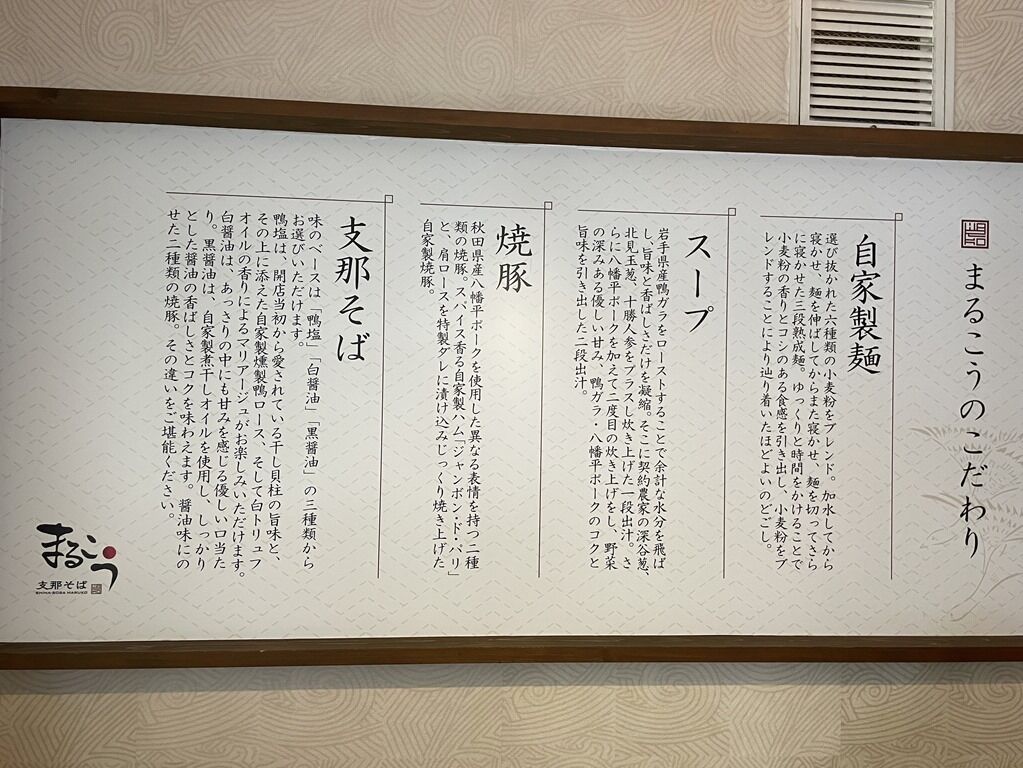 まるこうのこだわり
自家製麺
選び抜かれた六種類の小麦粉をブレンド。加水してから
寝かせ、麺を伸ばしてからまた寝かせ、麺を切ってさら
に寝かせた三段熟成麺。ゆっくりと時間をかけることで
小麦粉の香りとコシのある食感を引き出し、小麦粉をブ
レンドすることにより辿り着いたほどよいのどごし。
スープ
岩手県産鴨ガラをローストすることで余計な水分を飛ば
し、旨味と香ばしさだけを凝縮。そこに契約農家の深谷葱、
北見玉葱、十勝人参をプラスし炊き上げた一段出汁。さ
らに八幡平ポークを加えて二度目の炊き上げをし、野菜
の深みある優しい甘み、鴨ガラ・八幡平ポークのコクと
旨味を引き出した二段出汁。
焼豚
秋田県産八幡平ポークを使用した異なる表情を持つ二種
類の焼豚。スパイス香る自家製ハム「ジャンボン・ド・パリ」
と、肩ロースを特製ダレに漬け込みじっくり焼き上げた
自家製焼豚。
支那そば
味のベースは「鴨塩」「白醤油」「黒醤油」の三種類から
お選びいただけます。
鴨塩は、開店当初から愛されている干し貝柱の旨味と、
その上に添えた自家製燻製鴨ロース、そして白トリュフ
オイルの香りによるマリアージュがお楽しみいただけます。
白醤油は、あっさりの中にも甘みを感じる優しい口当た
り。黒醤油は、自家製煮干しオイルを使用し、しっかり
とした醤油の香ばしさとコクを味わえます。醤油味にの
せた二種類の焼豚。その違いをご堪能ください。
まるこう
支那そば
SHINA-SOBA MARUKO